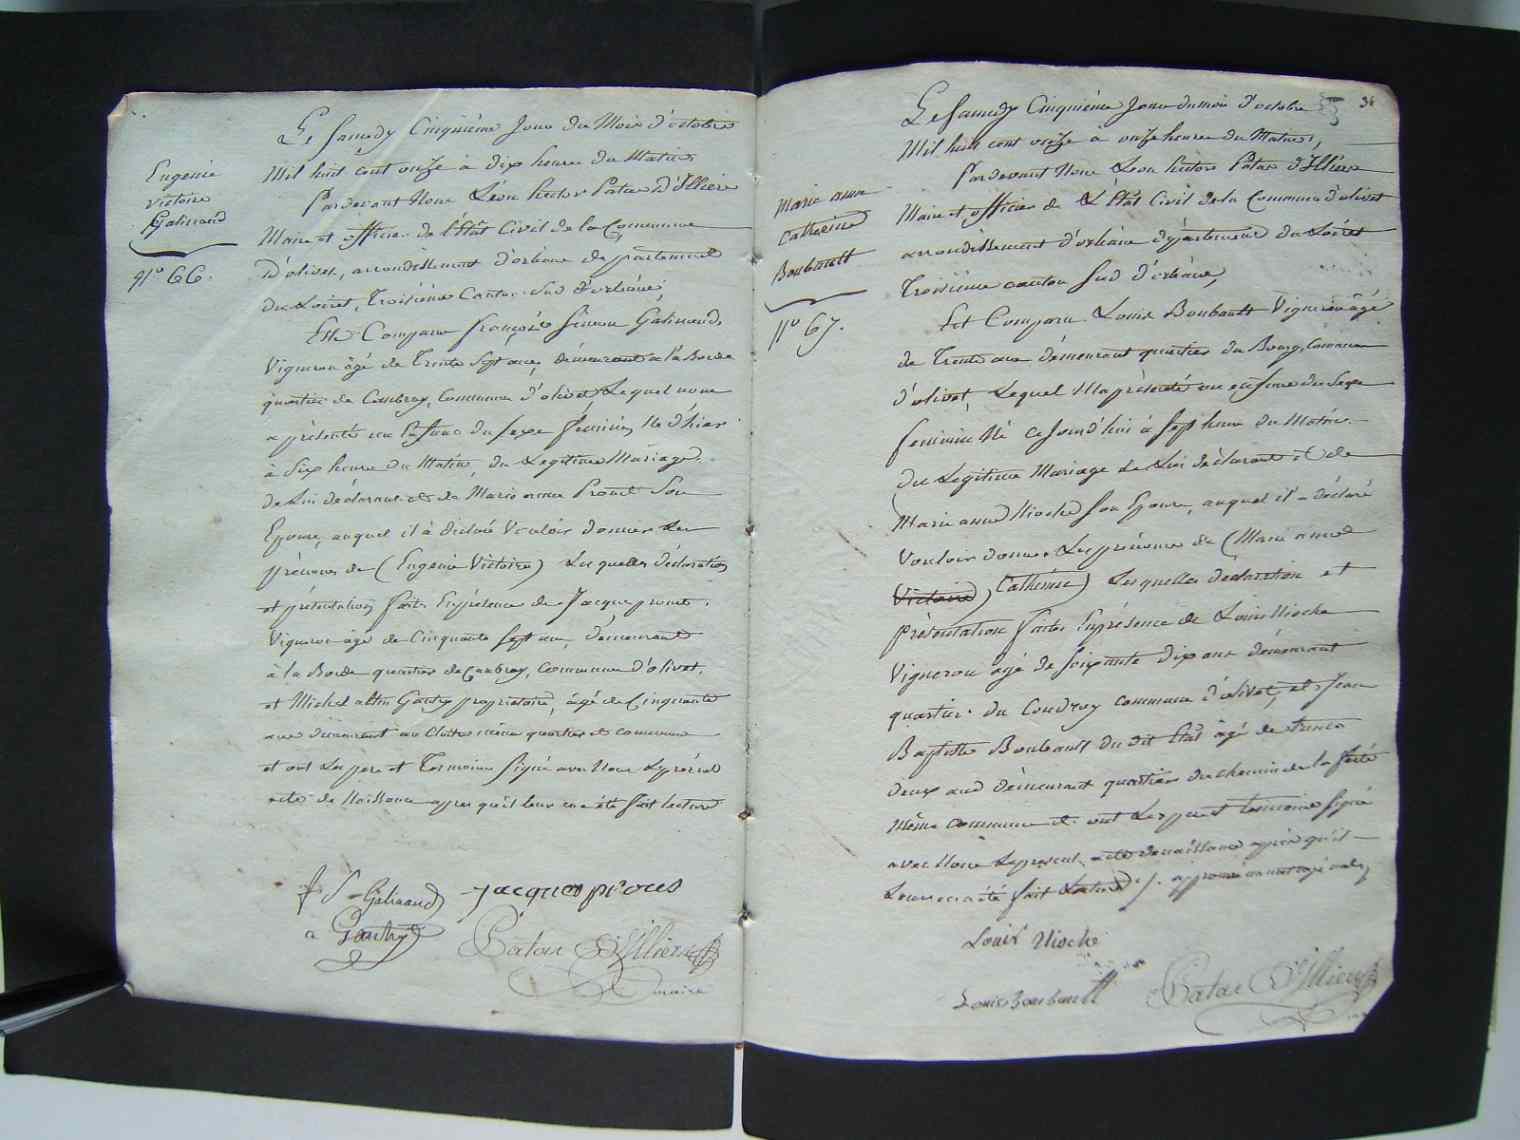 Eugénie
victoire
Galinand
N.° 66.
Le samedy Cinquième Jour du Mois d'octobre
Mil huit cent onze à dix heures du Matin
Pardevant Nous Léon hector Patas D'Illiers
Maire et officier de l'état Civil de la Commune
d'olivet, arrondissement d'orléans departement
du Loiret, Troisième Canton Sud d'orléans;
Est Comparu françois Simon Galinand,
Vigneron âgé de Trente Sept ans, démeurant à la Borde
quartier de Combray, Commune d'olivet, Lequel nous
a présenté un Enfant du sexe féminin, Né d'hier
à Six heures du Matin, du Legitime Mariage
de Lui déclarant et de Marie anne Proust Son
Epouse, auquel il à déclaré Vouloir donner Les
prénoms de (Eugénie Victoire) Lesquelles déclaration
et présentation faites En présence de Jacque proust
Vigneron âgé de Cinquante Sept ans, démeurant
à la Borde quartier de Combray, Commune d'olivet,
et Michel Gaschy propriétaire, âgé de Cinquante
ans démeurant au même quartier et commune
et ont Les pere et Temoins Signé avec Nous Le présent
acte de Naissance apres qu'il leur en a été fait lecture
f S Galinand
Jacques prous
a Gaschy
Patas D'Illiers
maire
34
Marie anne
Catherine
Boubault
N.° 67.
Le samedy Cinquième Jour du mois d'octobre
Mil huit cent onze à onze heures du Matin,
Pardevant Nous Léon hector Patas d'Illiers
Maire et officier de L'Etat Civil de la Commune d'olivet
arrondissement d'orléans département du Loiret
Troisième canton Sud d'orléans,
Est Comparu Louis Boubault Vigneron âgé
de Trente ans démeurant quartier du Bourg, Commune
d'olivet, Lequel Nous a présenté un enfant du Sexe
feminin Né Cejourd'hui à Sept heures du Matin
du Legitime Mariage de Lui déclarant et de
Marie anne Nioche Son Epouse, auquel il a déclaré
Vouloir donner Les prénoms de (Marie anne
Victoire) Catherine) Lesquelles declaration et
présentation faites En présence de Louis Nioche
Vigneron âgé de soixante dix ans démeurant
quartier du Coudray commune d'olivet, et Jean
Baptiste Boubault du dit Etat âgé de trente
deux ans démeurant quartier du chemin de la ferté
même commune et ont Les pere et temoins signé
avec Nous Le present acte de naissance après qu'il
Leur en a été fait Lecture ./.
Louis Nioche
Louis Boubault
Patas D'Illiers